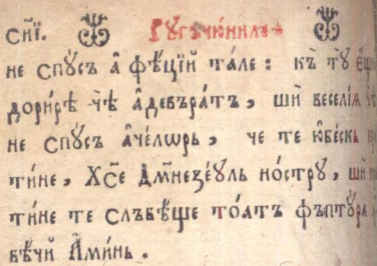 сїй. Ругъчюнилъ
не спꙋсъ а҆ фѣцїй тале: къ тꙋ є҆щй
дорирѣ чѣ а҆девъратъ, шѝ веселїѧ
не спꙋсъ а҆челѡрь, че те ю҆бескь
тине, Хс҃е Дм҃незеꙋль ностру, шѝ
тине те слъвѣще тоатъ фъптꙋра
вѣчй А҆минь.